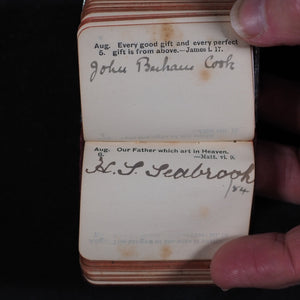 Aug. Every good gift and every perfect
5. gift is from above.—James i. 17.
John Cook
Aug. Our Father which art in Heaven.
6. —Matt. vi. 9.
H. S. Seabrook
/84